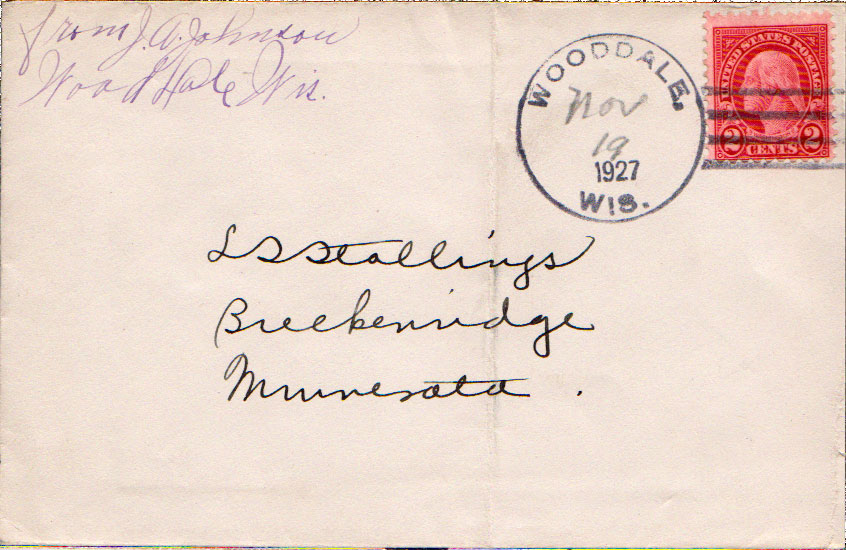 from J. A. Johnson
Wood Dale Wis.
WOODDALE.
Nov
19
1927
WIS.
UNITED STATES POSTAGE
2 CENTS 2
L S Stallings
Breckenridge
Minnesota .